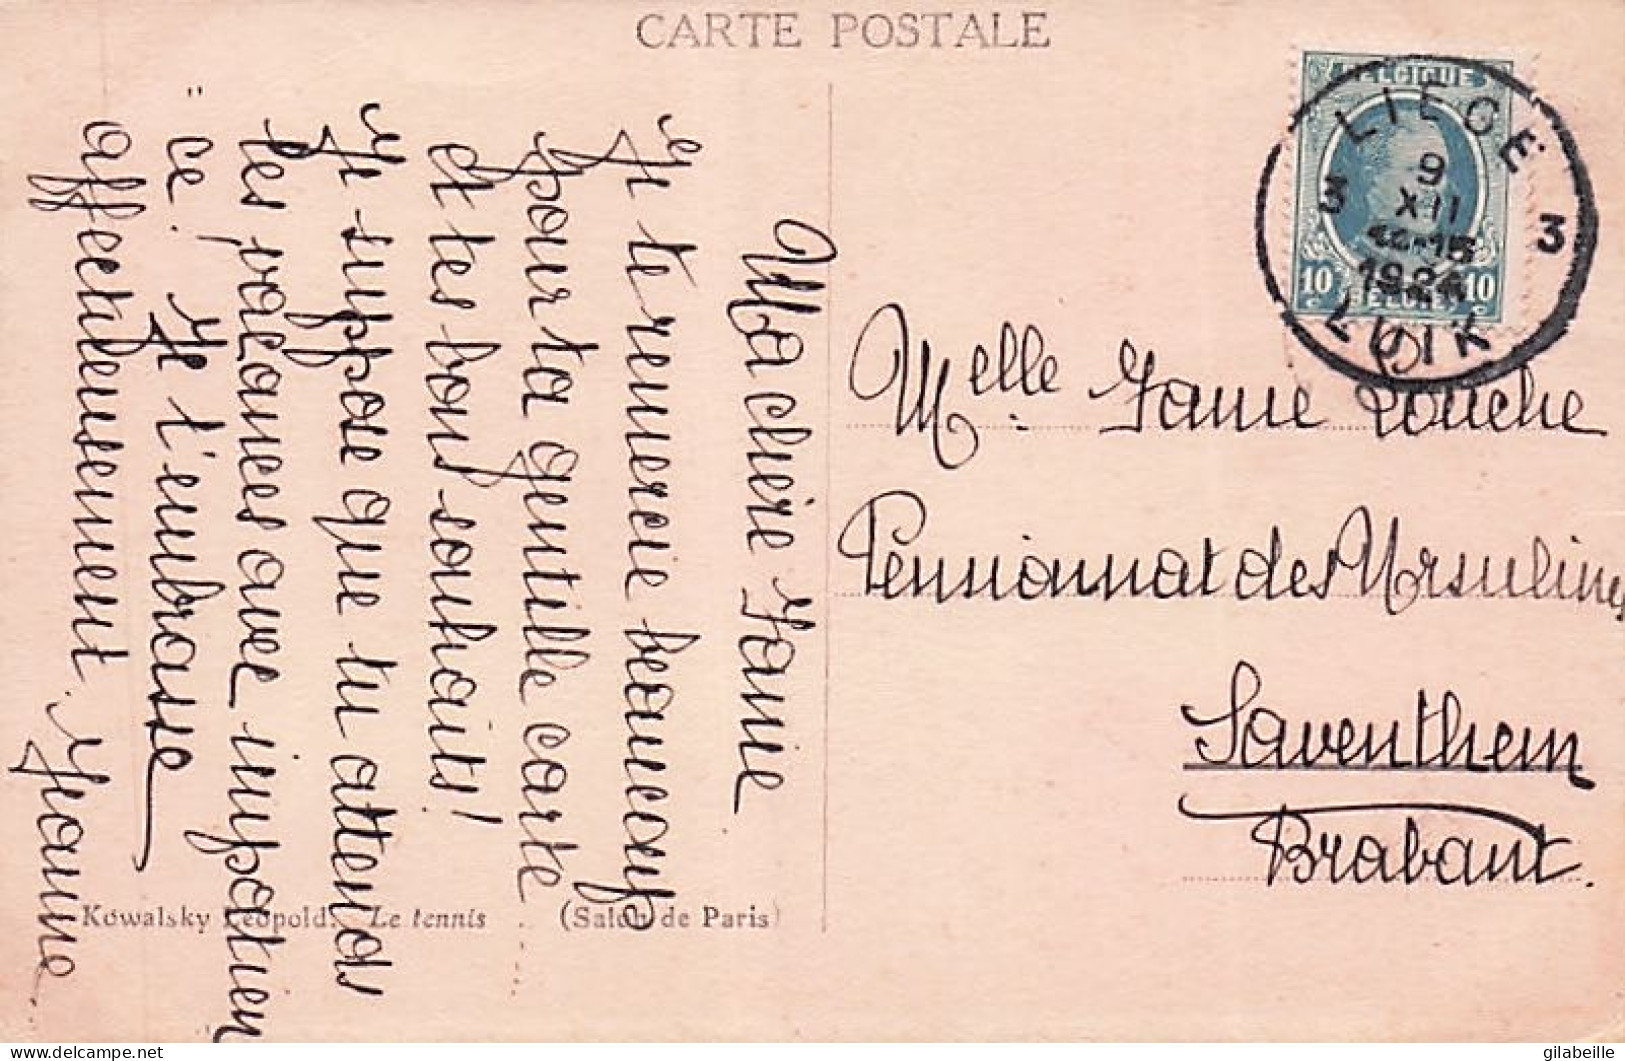 CARTE POSTALE
BELGIQUE
LIEGE
9
XII
3 3
1924
LUIK
10 10
Melle Janie Louche
Pensionnat des Ursulines
Saventhem
Brabant.
Ma chère Janie
Je te remercie beaucoup
pour ta gentille carte
et tes bons souhaits!
Je suppose que tu attends
les vacances avec impatien
"ce! Je t'embrasse
affectueusement. Jeanne.
Kowalsky Léopold. Le tennis (Salon de Paris)
gilabeille